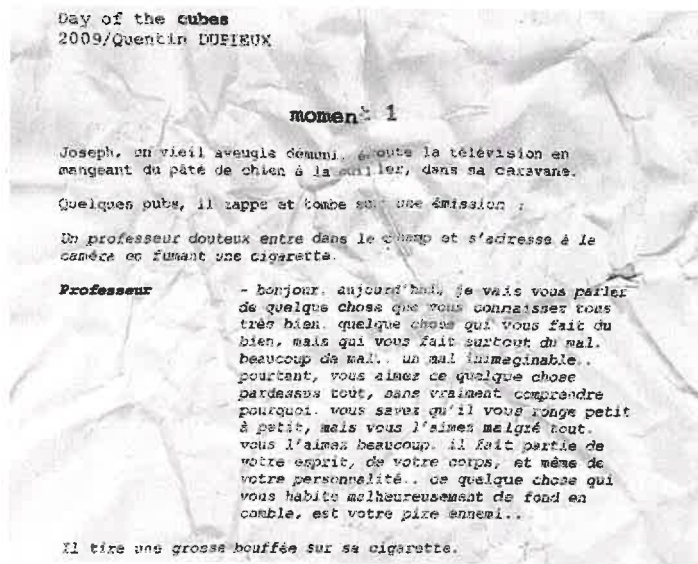 Day of the cubes
2009/Quentin DUPIEUX
moment 1
Joseph, un vieil aveugle démuni, écoute la télévision en
mangeant du pâté de chien à la cuiller, dans sa caravane.
Quelques pubs, il zappe et tombe sur une émission :
Un professeur douteux entre dans le champ et s'adresse à la
caméra en fumant une cigarette.
Professeur - bonjour. aujourd'hui, je vais vous parler
de quelque chose que vous connaissez tous
très bien. quelque chose qui vous fait du
bien, mais qui vous fait surtout du mal.
beaucoup de mal.. un mal inimaginable..
pourtant, vous aimez ce quelque chose
pardessus tout, sans vraiment comprendre
pourquoi. vous savez qu'il vous ronge petit
à petit, mais vous l'aimez malgré tout.
vous l'aimez beaucoup. il fait partie de
votre esprit, de votre corps, et même de
votre personnalité.. ce quelque chose qui
vous habite malheureusement de fond en
comble, est votre pire ennemi..
Il tire une grosse bouffée sur sa cigarette.